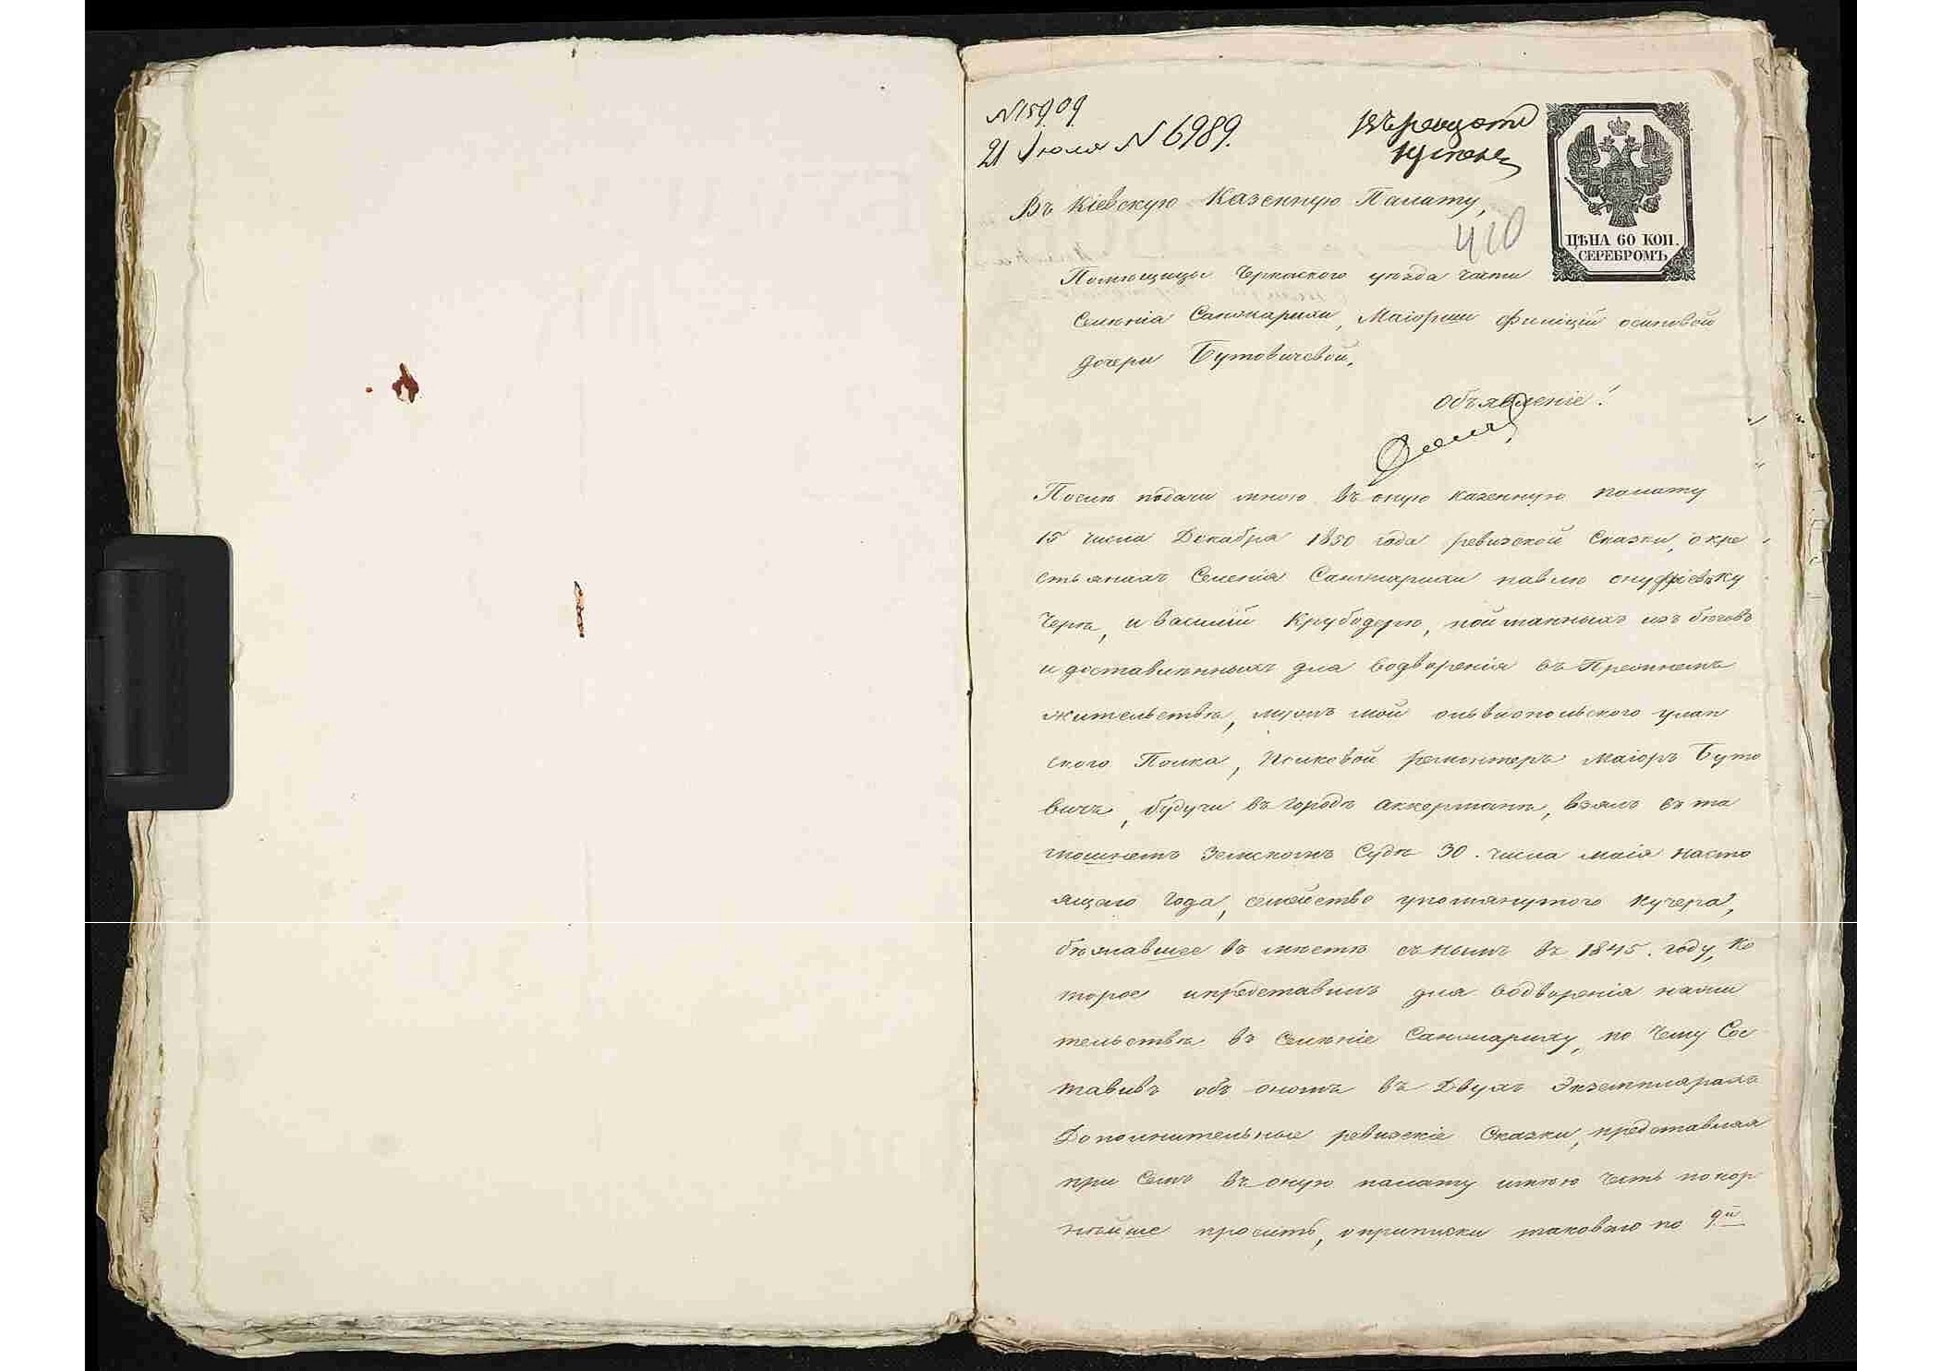 N 15909
21 Июля N 6989.
ЦѢНА 60 КОП.
СЕРЕБРОМЪ
Въ Кіевскую Казенную Палату,
410
Помѣщицы Черкаского уѣзда части
Селѣнія Санжарихи, Маіорши Филиціи осиповой
дочери Бутовичевой,
Объявленіе!
После подачи мною въ оную казенную палату
15 числа Декабря 1850 года ревизской Сказки, о кре
стьянахъ Селенія Санжарихи павлю онуфріевѣ ку
черѣ, и василіи Крубодерю, пойманныхъ изъ бѣговъ
и доставленныхъ для водворенія въ Прежнемъ
жительствѣ, мужъ мой ольвиопольского улан
ского Полка, Полковой ремонтеръ маіоръ Буто
вичъ, будучи въ городѣ Аккерманѣ, взялъ въ та
мошнемъ Земскомъ Судѣ 30. числа маія насто
ящаго года, семейство упомянутого Кучера,
бѣжавшее въ мѣстѣ съ нымъ въ 1845. году, Ко
торое и представилъ для водворенія на жи
тельства въ Селѣніе Санжариху, по Чему Сос
тавивъ объ ономъ въ Двухъ Экземплярахъ
Дополнительные ревизскіе Сказки, представляя
при Семъ въ оную палату имѣю Честь покор
нѣйше просить, о приписки таковаго по 9й